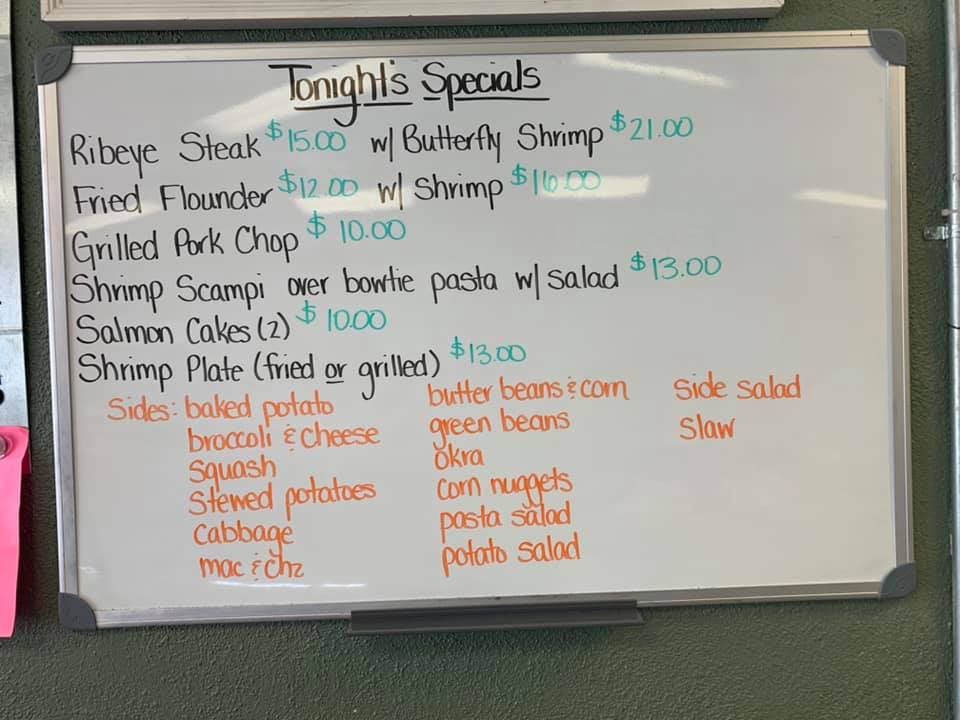 Tonight's Specials
Ribeye Steak $15.00 w/ Butterfly Shrimp $21.00
Fried Flounder $12.00 w/ Shrimp $16.00
Grilled Pork Chop $10.00
Shrimp Scampi over bowtie pasta w/ salad $13.00
Salmon Cakes (2) $10.00
Shrimp Plate (fried or grilled) $13.00
Sides: baked potato
broccoli & cheese
squash
Stewed potatoes
Cabbage
mac & chz
butter beans & corn
green beans
okra
corn nuggets
pasta salad
potato salad
Side salad
Slaw